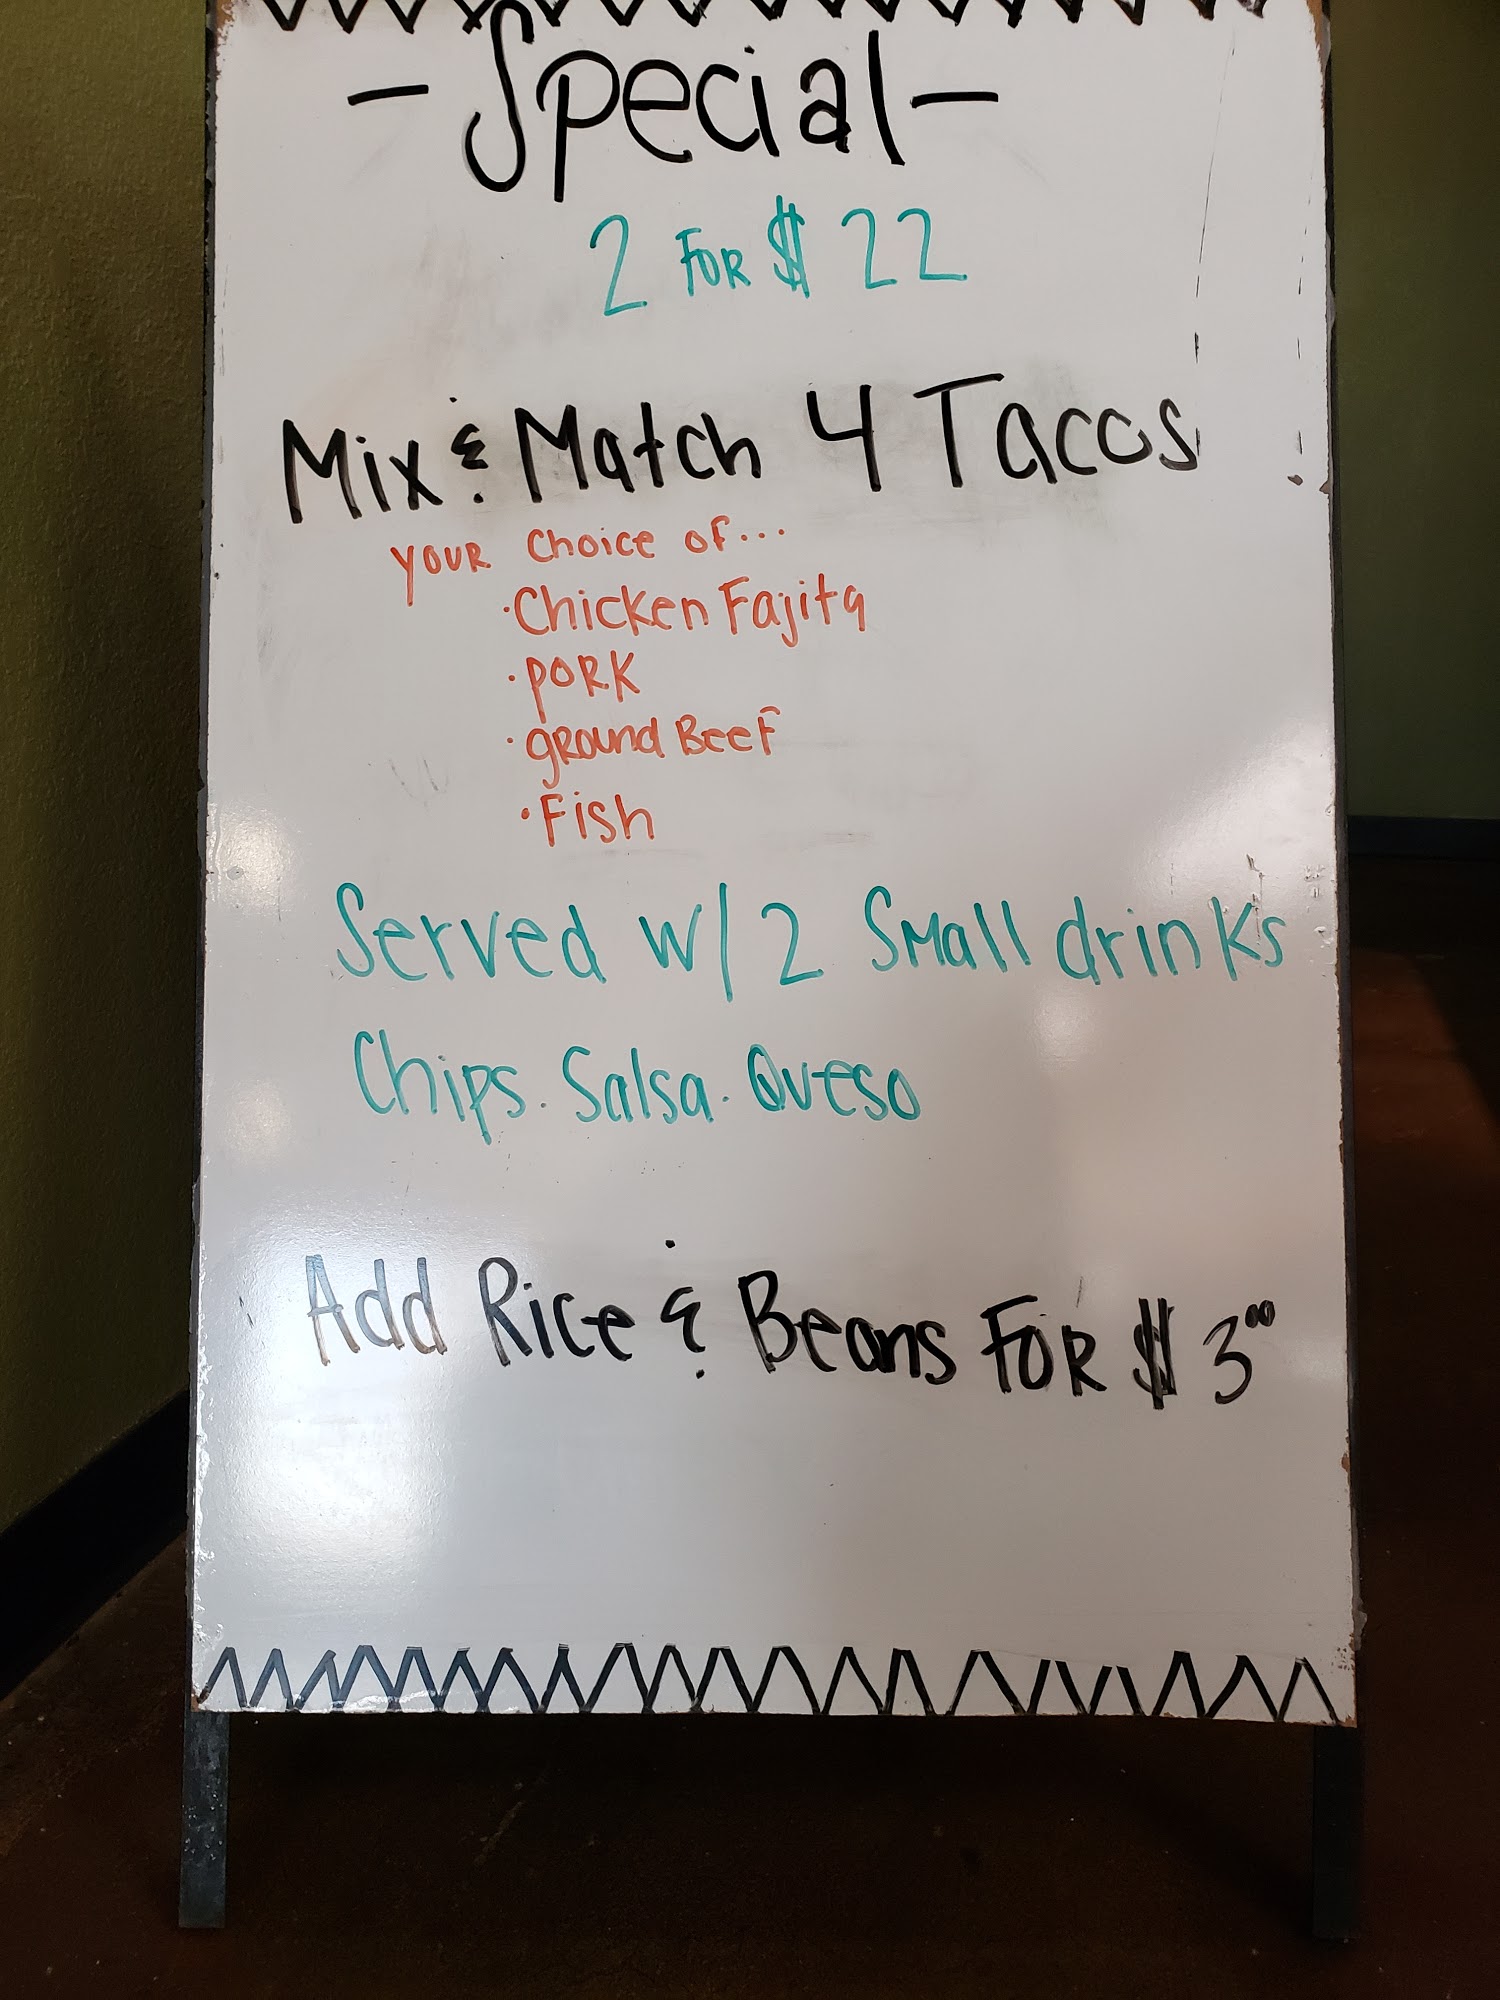 - Special -
2 FOR $ 22
Mix & Match 4 Tacos
YOUR Choice of...
· Chicken Fajita
· PORK
· gROund BeeF
· Fish
Served w/ 2 Small drinks
Chips. Salsa. Queso
Add Rice & Beans FOR $ 3⁰⁰